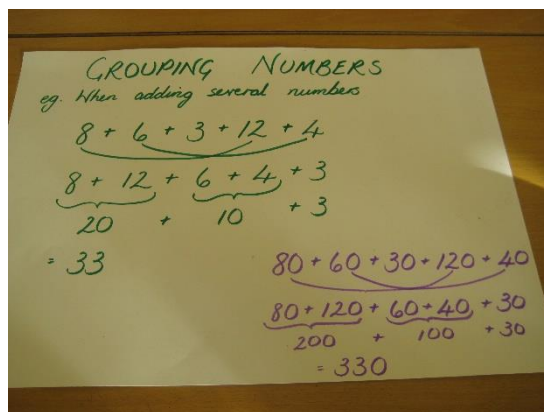 GROUPING NUMBERS
eg. When adding several numbers
8 + 6 + 3 + 12 + 4
8 + 12 + 6 + 4 + 3
20 + 10 + 3
= 33
80 + 60 + 30 + 120 + 40
80 + 120 + 60 + 40 + 30
200 + 100 + 30
= 330